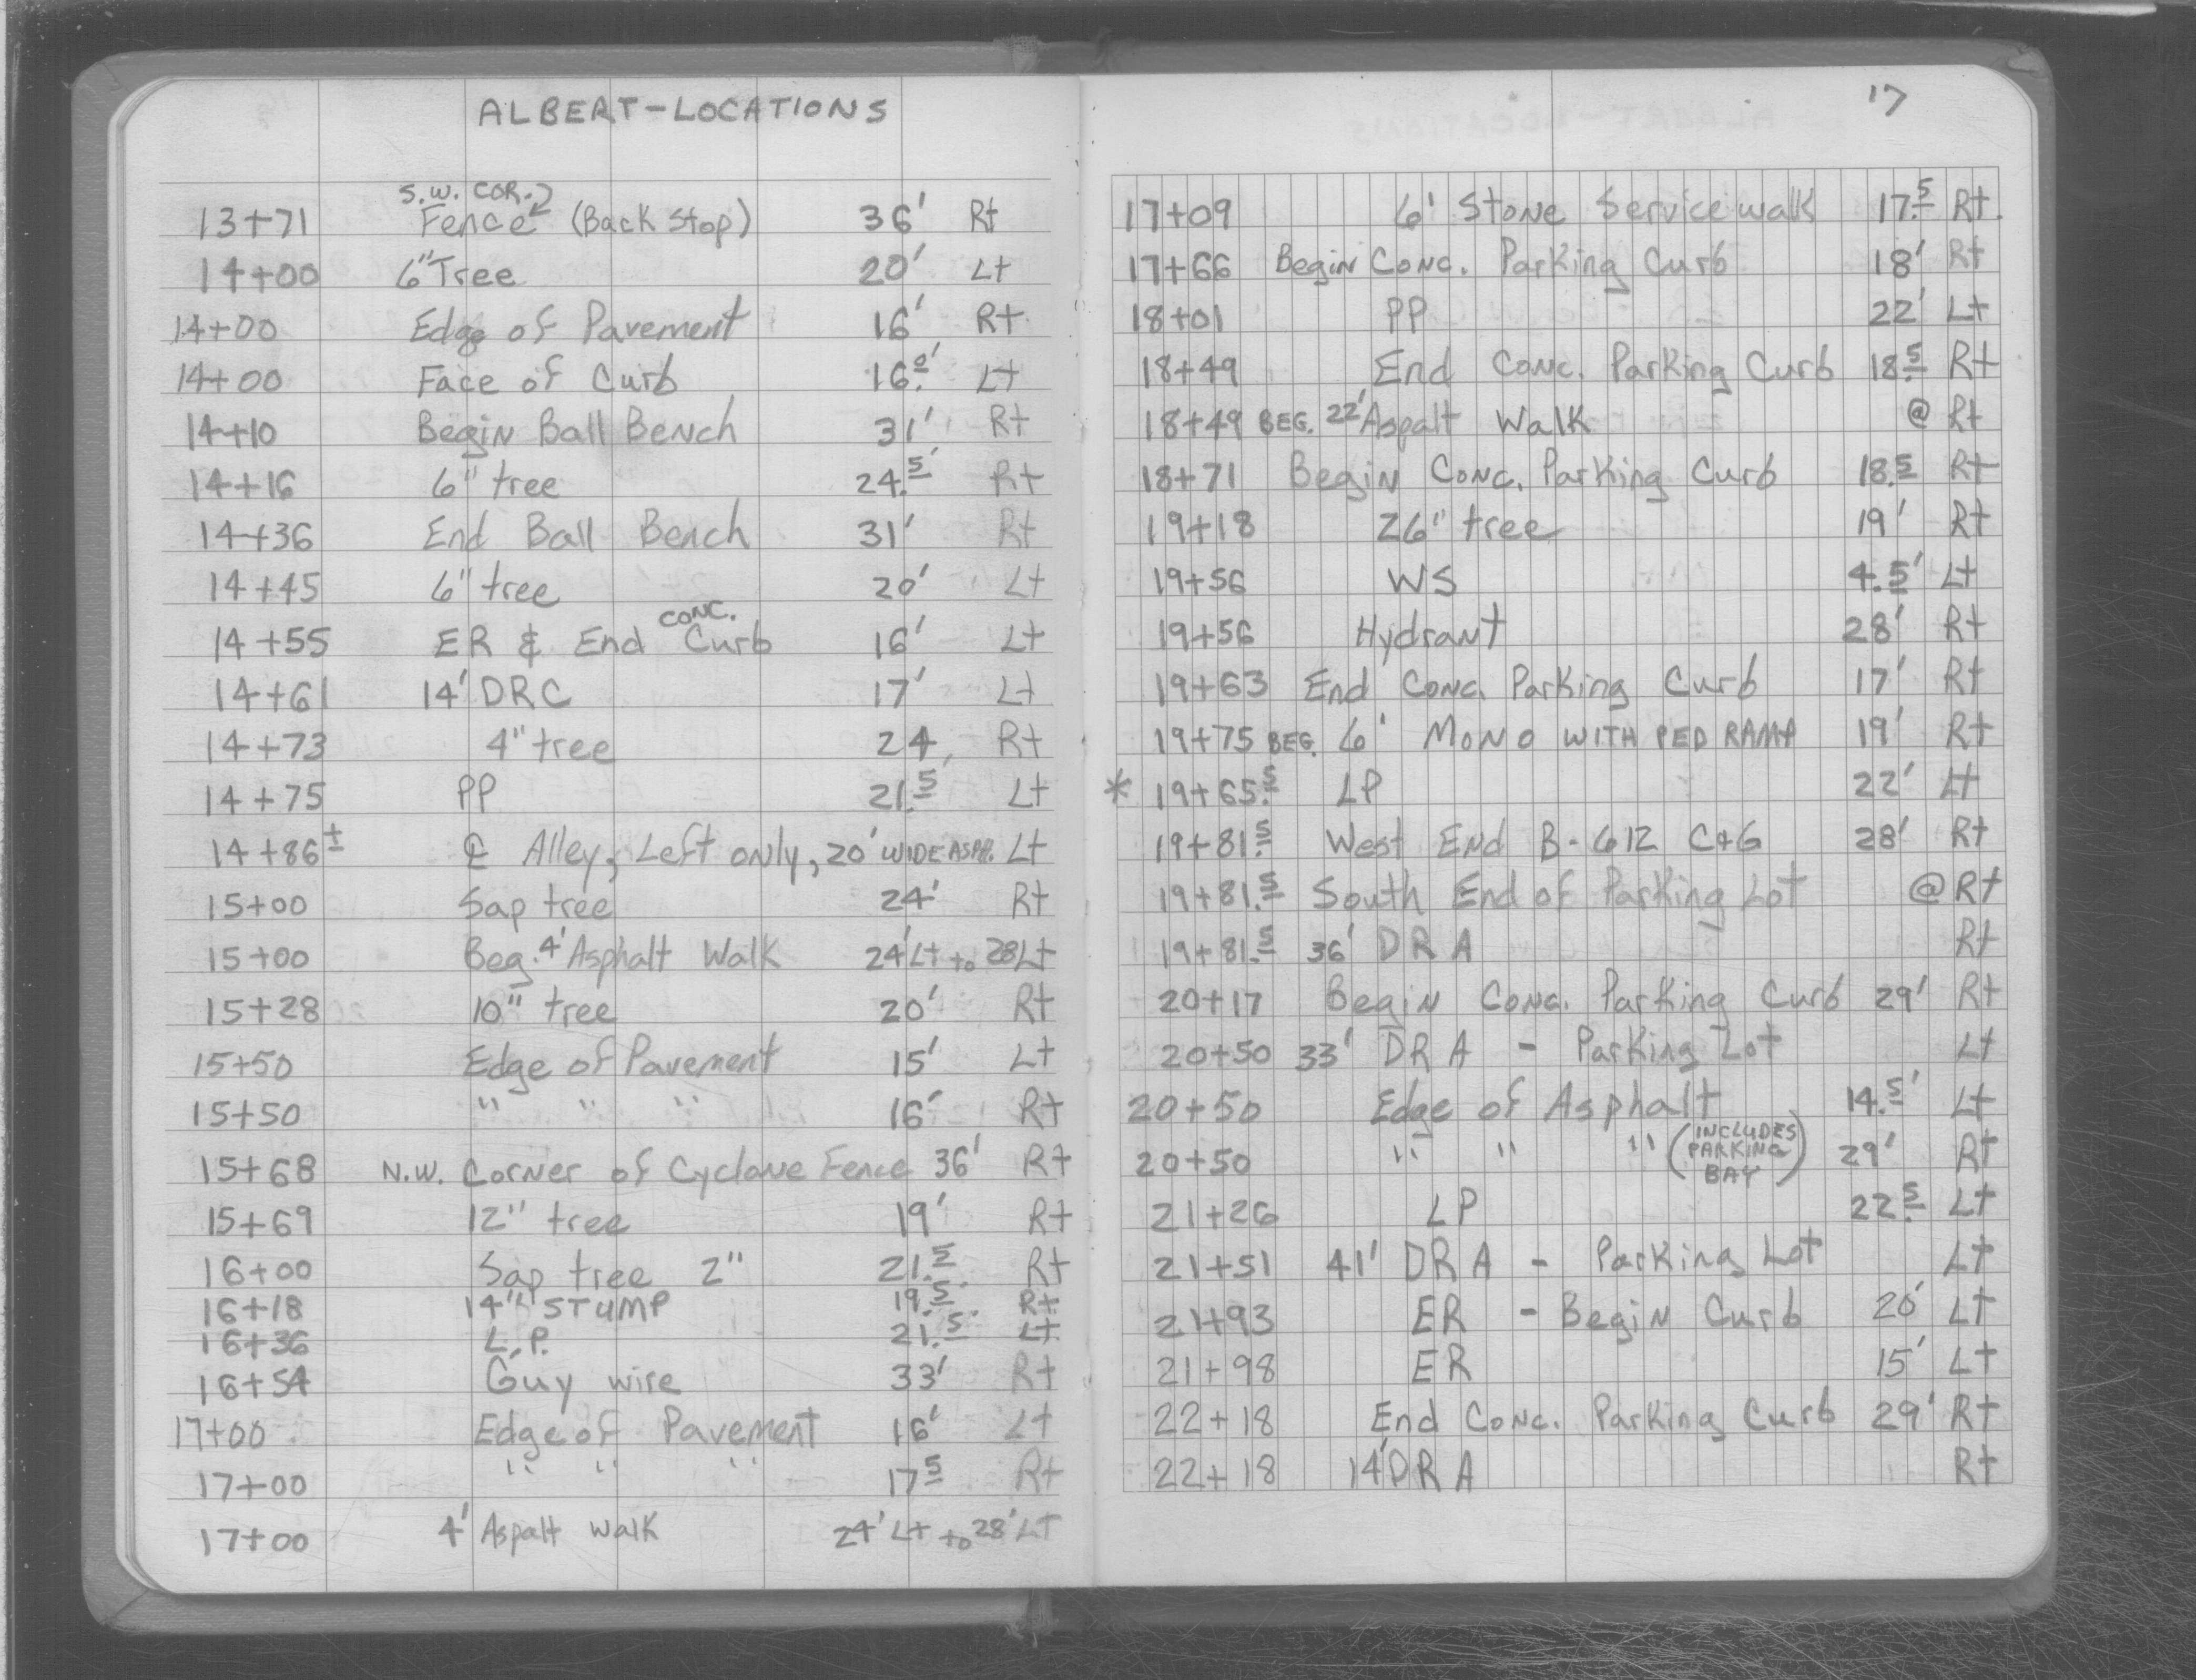 ALBERT-LOCATIONS
S.W. COR.
13+71 Fence (Back Stop) 36' Rt
14+00 6" Tree 20' Lt
14+00 Edge of Pavement 16' Rt
14+00 Face of Curb 16.0' Lt
14+10 Begin Ball Bench 31' Rt
14+16 6" tree 24.5' Rt
14+36 End Ball Bench 31' Rt
14+45 6" tree 20' Lt
14+55 ER & End conc. Curb 16' Lt
14+61 14' DRC 17' Lt
14+73 4" tree 24, Rt
14+75 PP 21.5 Lt
14+86± ℄ Alley, Left only, 20' WIDE ASPH. Lt
15+00 Sap tree 24' Rt
15+00 Beg. 4' Asphalt Walk 24'Lt to 28Lt
15+28 10" tree 20' Rt
15+50 Edge of Pavement 15' Lt
15+50 " " " 16' Rt
15+68 N.W. Corner of Cyclone Fence 36' Rt
15+69 12" tree 19' Rt
16+00 Sap tree 2" 21.5 Rt
16+18 14" STUMP 19.5 Rt
16+36 L.P. 21.5 Lt
16+54 Guy wire 33' Rt
17+00 Edge of Pavement 16' Lt
17+00 " " " 17.5 Rt
17+00 4' Aspalt walk 24' Lt to 28' Lt
17
17+09 6' Stone Service walk 17.5 Rt.
17+66 Begin Conc. Parking Curb 18' Rt
18+01 PP 22' Lt
18+49 End Conc. Parking Curb 18.5 Rt
18+49 BEG. 22' Aspalt Walk @ Rt
18+71 Begin Conc. Parking Curb 18.5 Rt
19+18 26" tree 19' Rt
19+56 WS 4.5' Lt
19+56 Hydrant 28' Rt
19+63 End Conc. Parking Curb 17' Rt
19+75 BEG. 6' MONO WITH PED RAMP 19' Rt
* 19+65.5 LP 22' Lt
19+81.5 West End B-612 C+G 28' Rt
19+81.5 South End of Parking Lot @ Rt
19+81.5 36' DRA Rt
20+17 Begin Conc. Parking Curb 29' Rt
20+50 33' DRA - Parking Lot Lt
20+50 Edge of Asphalt 14.5' Lt
20+50 " " " (INCLUDES PARKING BAY) 29' Rt
21+26 LP 22.5 Lt
21+51 41' DRA - Parking Lot Lt
21+93 ER - Begin Curb 20' Lt
21+98 ER 15' Lt
22+18 End Conc. Parking Curb 29' Rt
22+18 14' DRA Rt